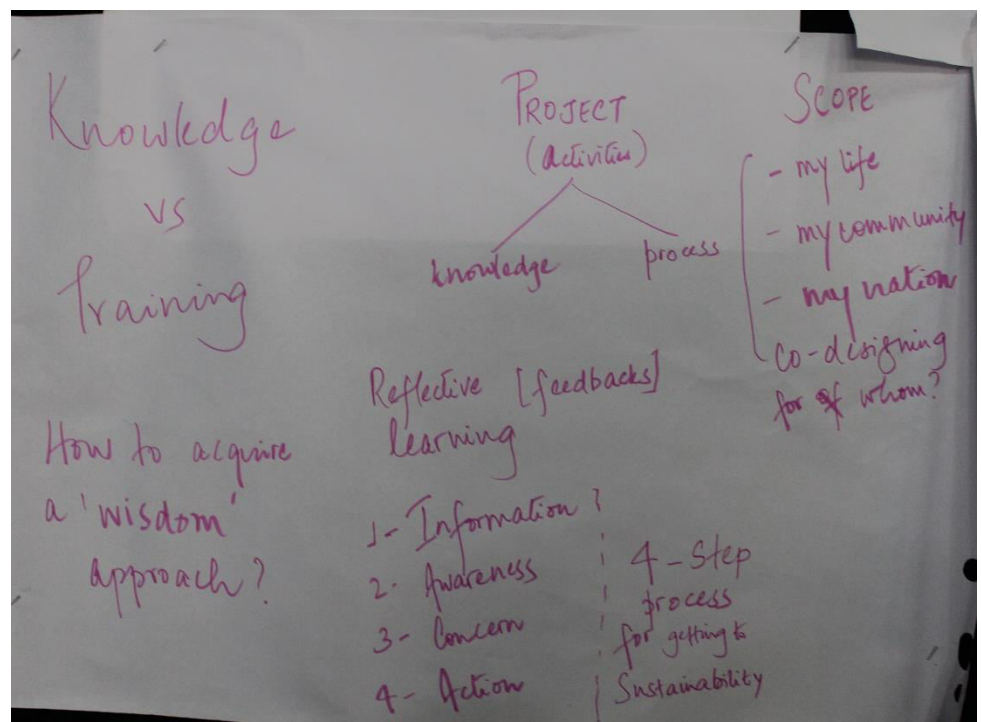 Knowledge
vs
Training
How to acquire
a 'wisdom'
approach?
PROJECT
(activities)
knowledge
process
Reflective [feedbacks]
learning
1- Information
2- Awareness
3- Concern
4- Action
4-Step
process
for getting to
Sustainability
SCOPE
- my life
- my community
- my nation
co-designing
for whom?